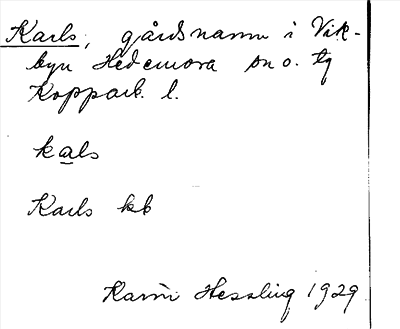 Karls, gårdsnamn i Vik-
byn Hedemora sn o. tg
Koppark. l.
kals
Karls kb
Karin Hessling 1929